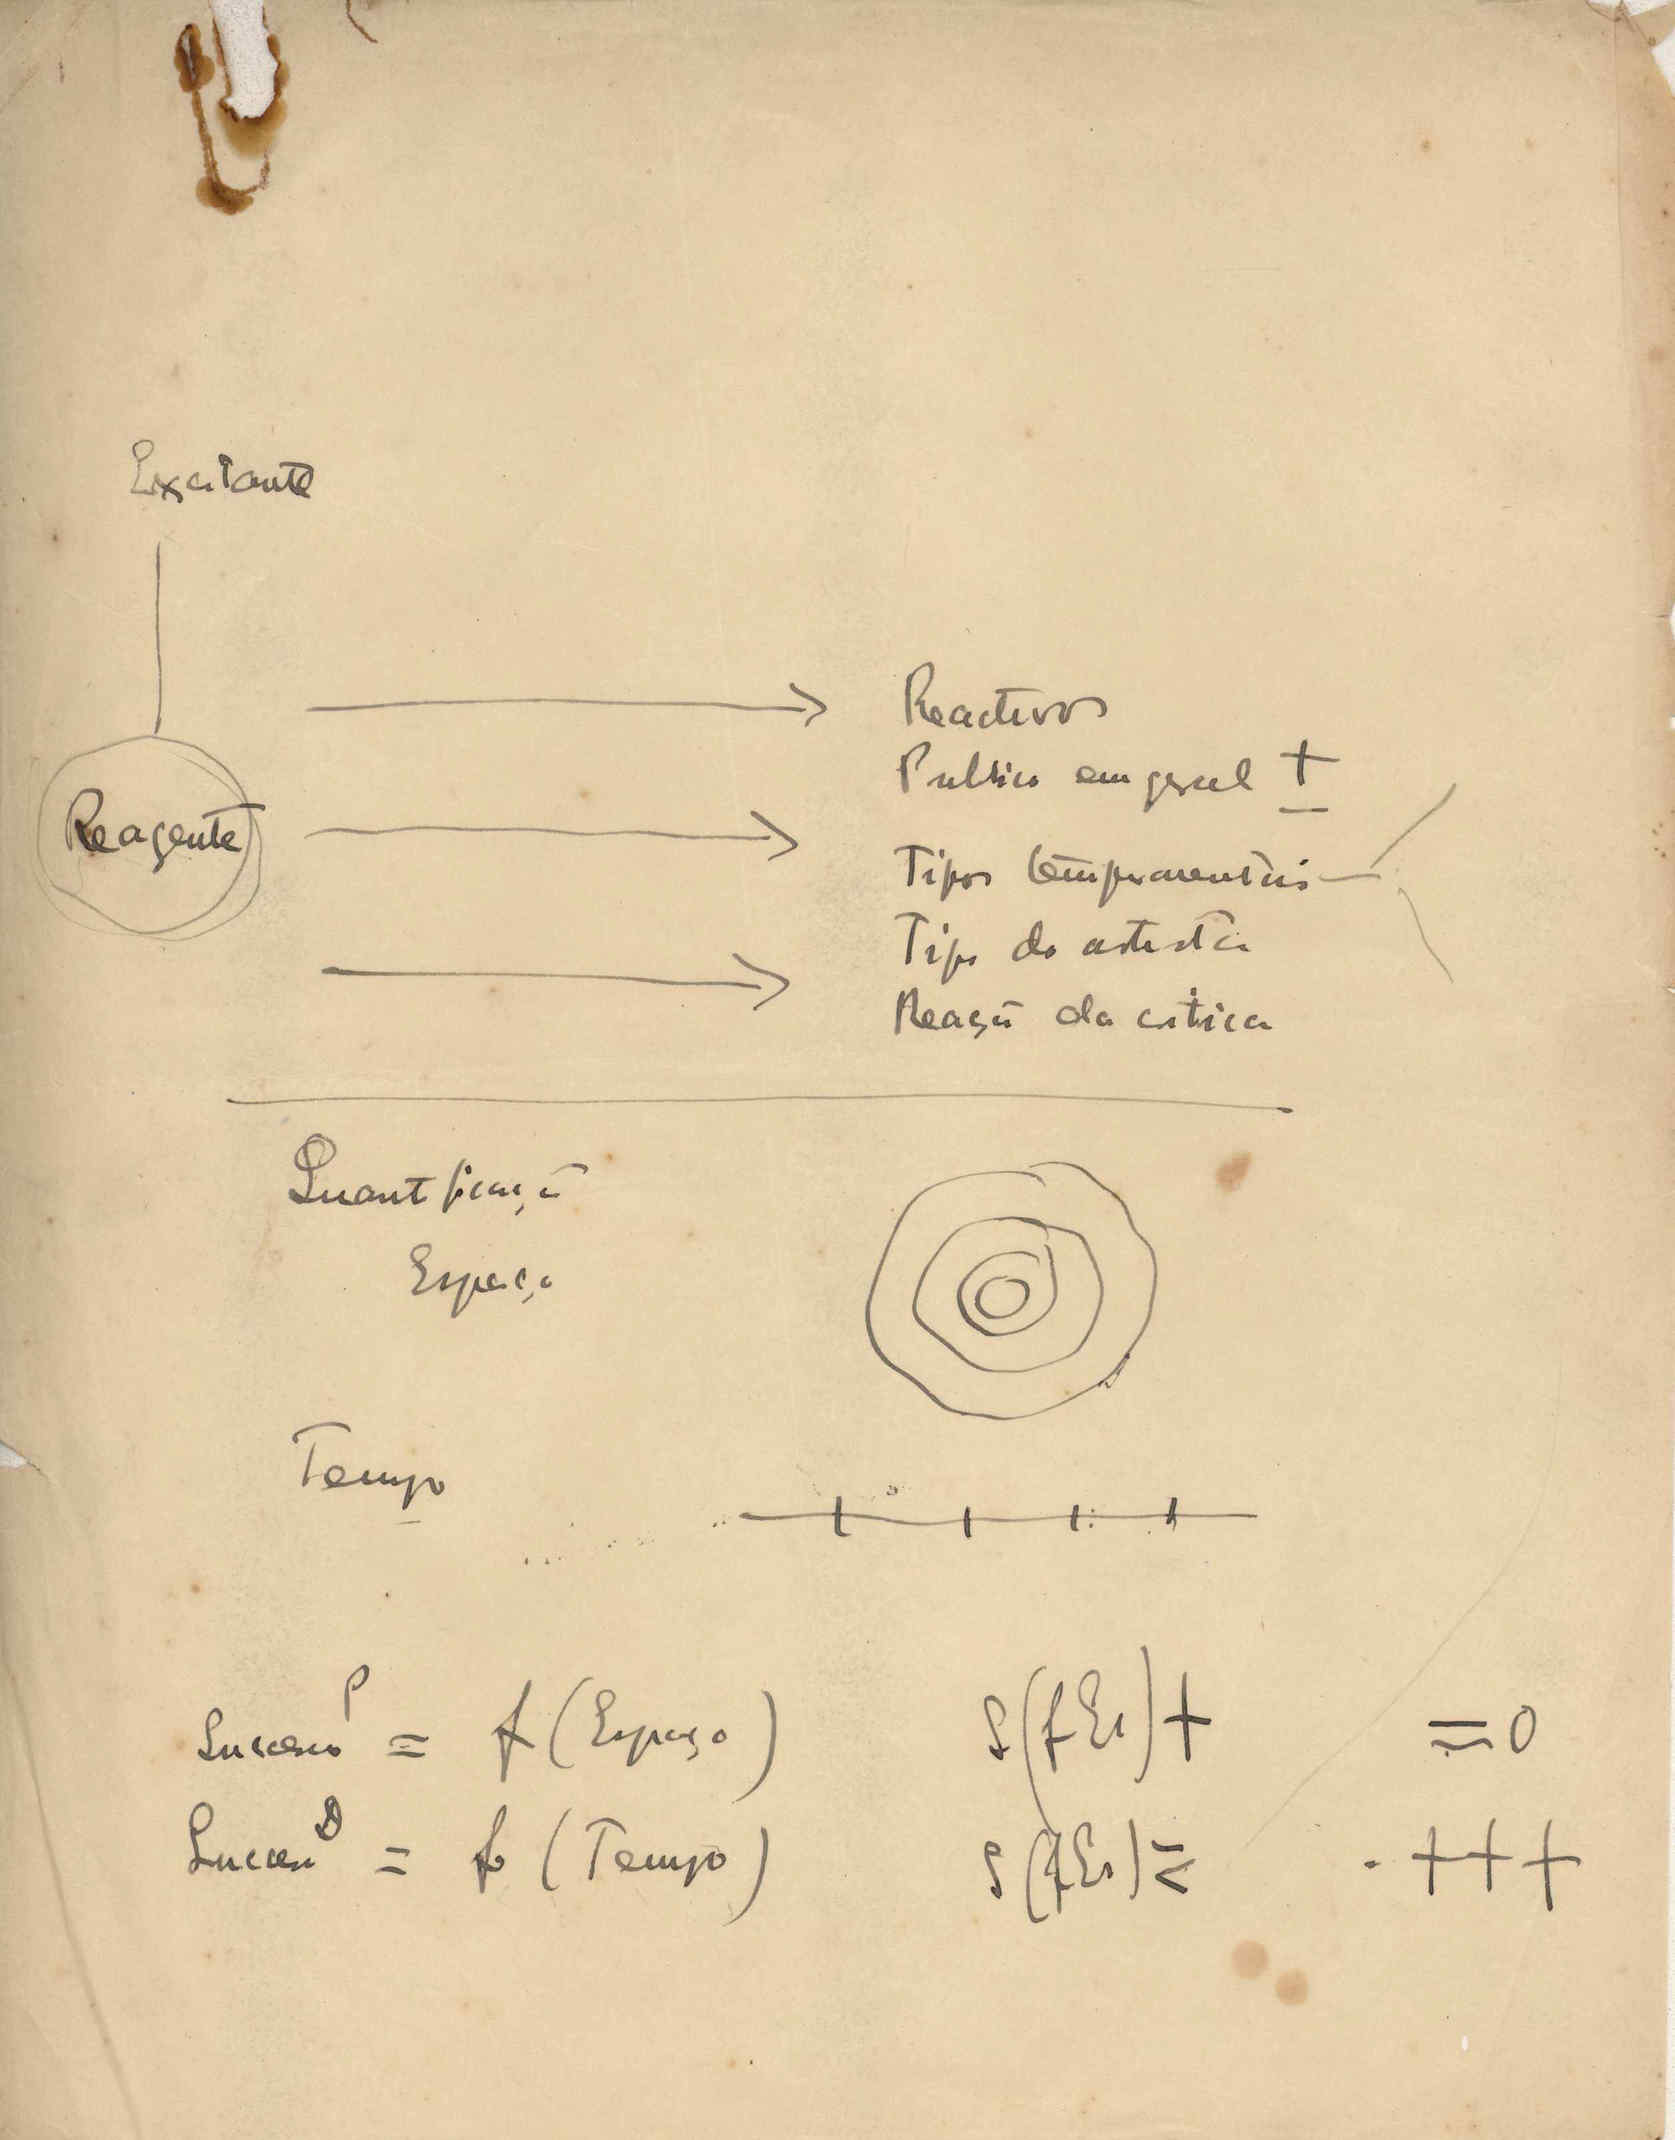 Excitante
Reagente
Reactivos
Publico em geral ±
Tipos temperamentais
Tipo do artista
Reação da critica
Quantificação
Espaço
Tempo
Sucesso P = f (Espaço) S(fEs)+ =0
Sucesso D = f (Tempo) S(fEs) +++